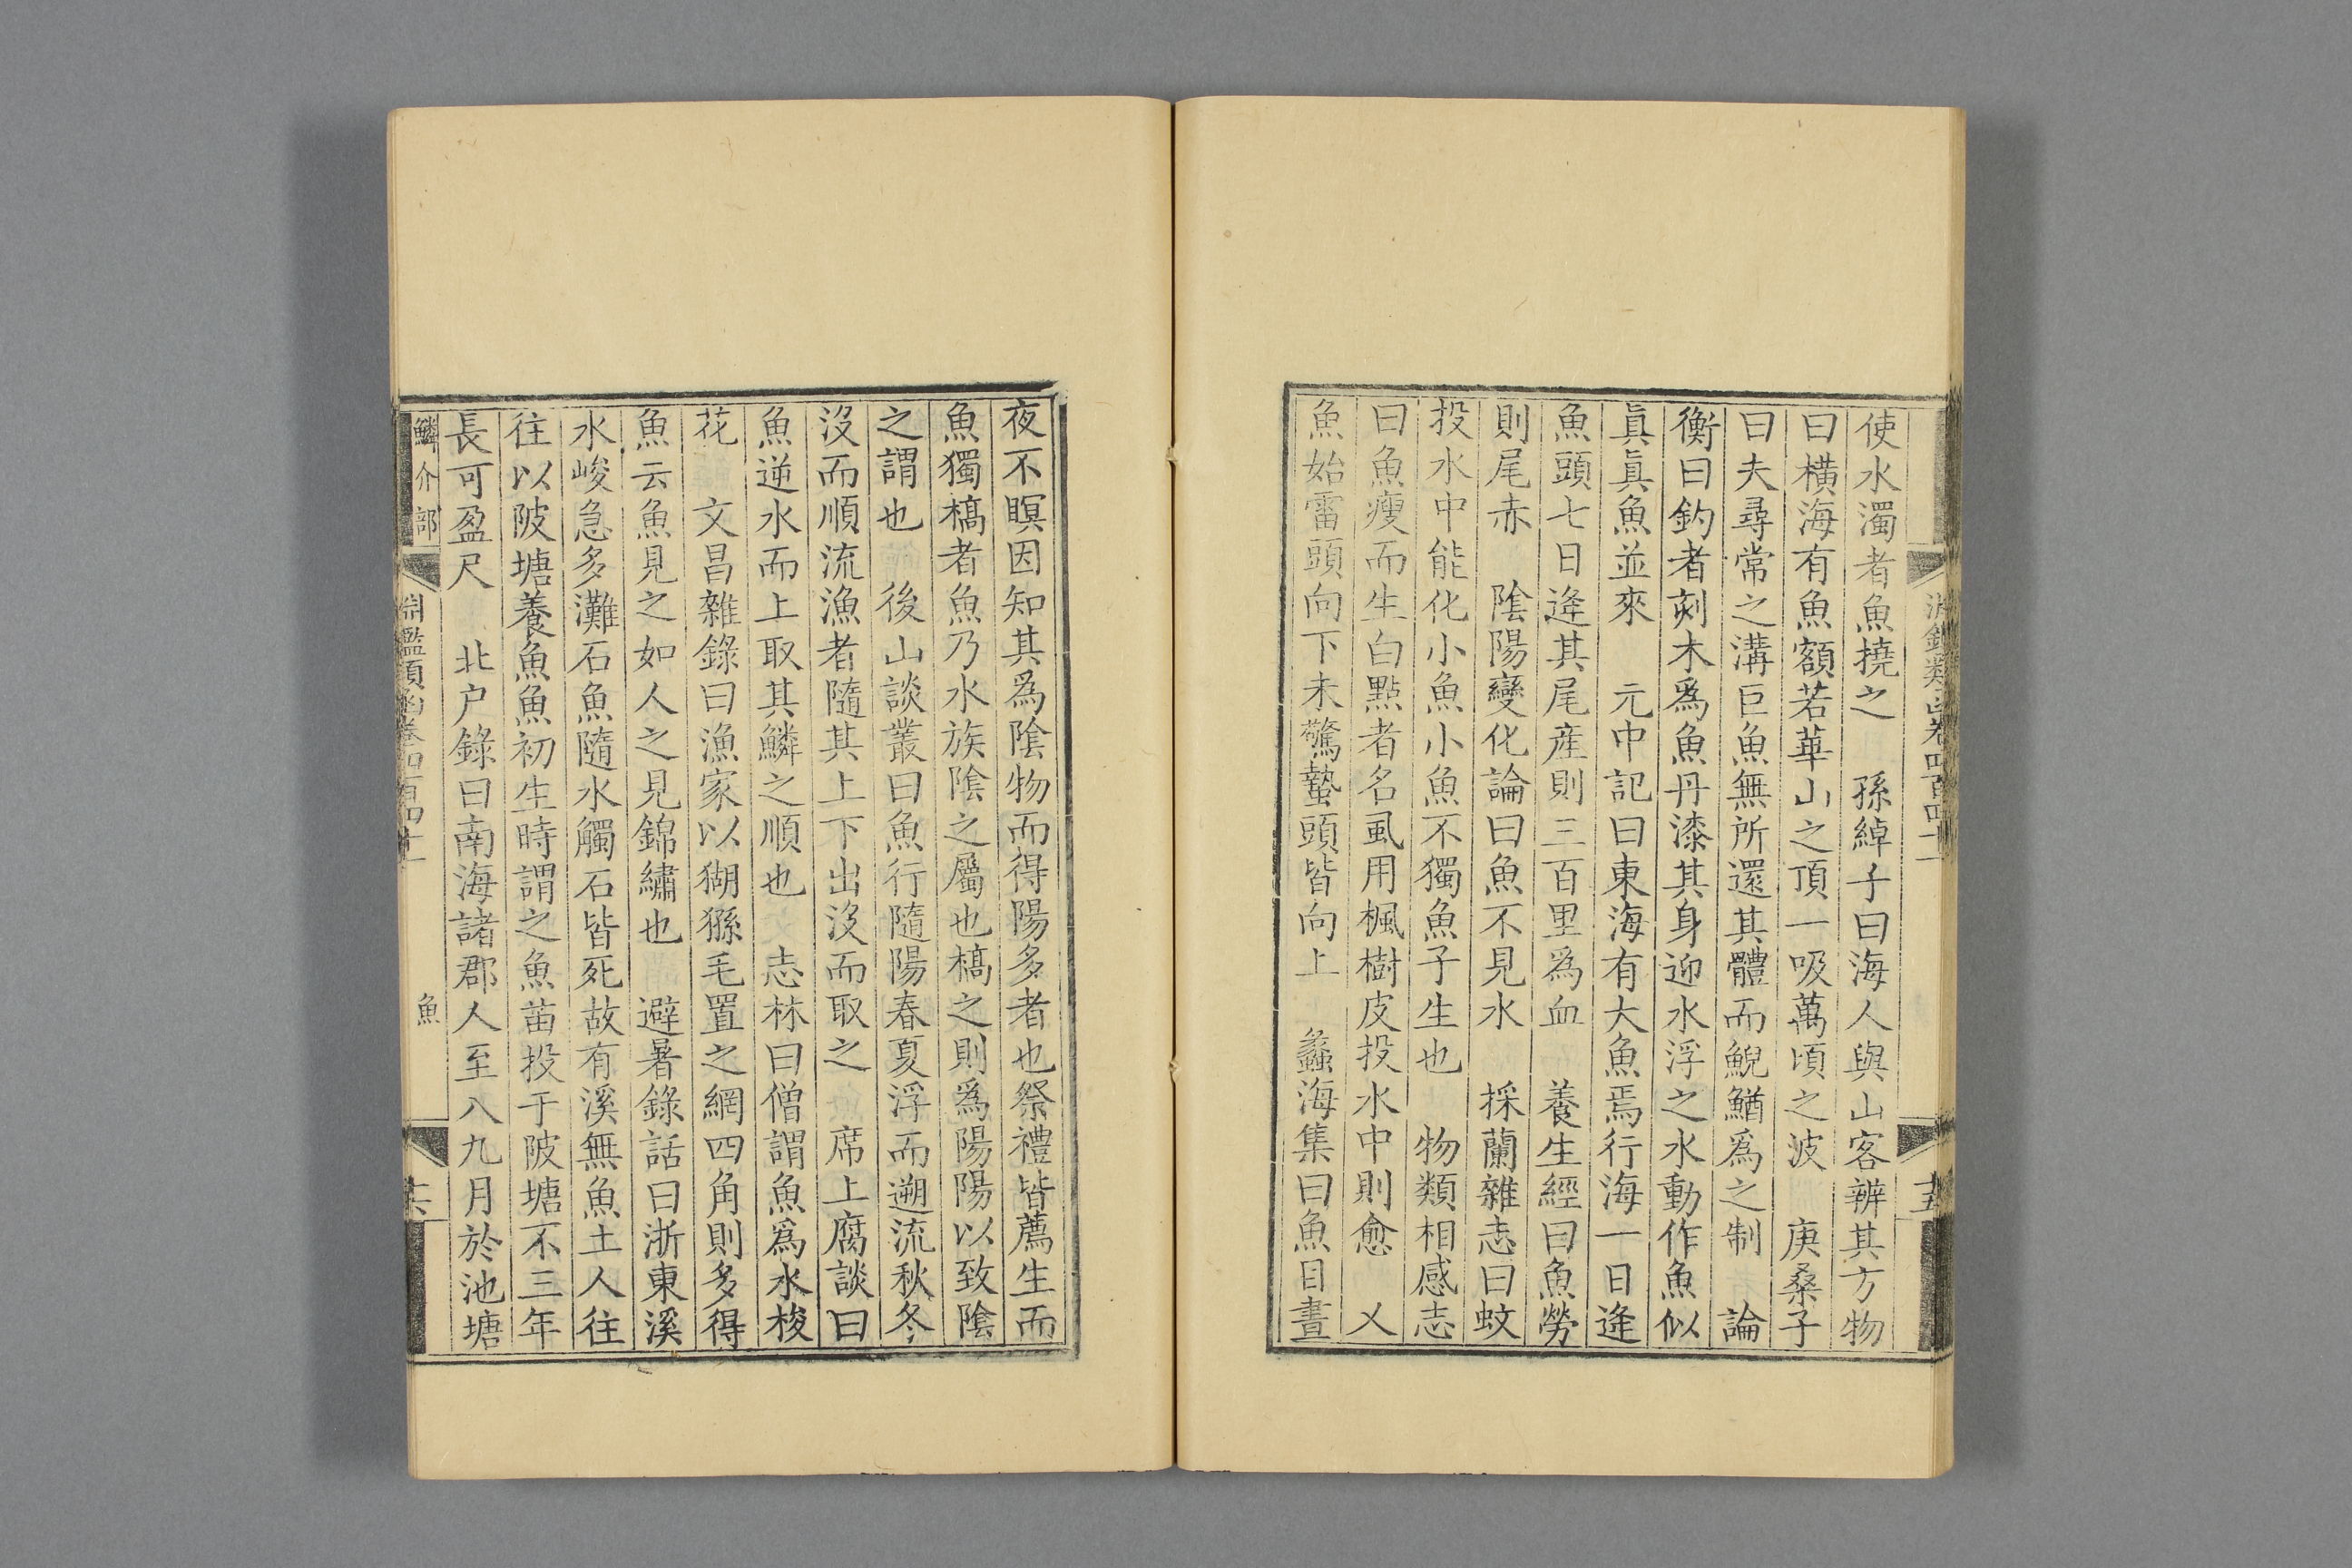 淵鑑類函卷四百四十一
十五
使水濁者魚撓之　孫綽子曰海人與山客辨其方物
曰橫海有魚額若華山之頂一吸萬頃之波　庚桑子
曰夫尋常之溝巨魚無所還其體而鯢鰌爲之制　論
衡曰釣者刻木爲魚丹漆其身迎水浮之水動作魚似
眞眞魚並來　元中記曰東海有大魚焉行海一日逢
魚頭七日逢其尾産則三百里爲血　養生經曰魚勞
則尾赤　陰陽變化論曰魚不見水　採蘭雜志曰蚊
投水中能化小魚小魚不獨魚子生也　物類相感志
曰魚瘦而生白點者名虱用楓樹皮投水中則愈　又
魚始雷頭向下未驚蟄頭皆向上　蠡海集曰魚目晝
夜不瞑因知其爲陰物而得陽多者也祭禮皆薦生而
魚獨槁者魚乃水族陰之屬也槁之則爲陽陽以致陰
之謂也　後山談叢曰魚行隨陽春夏浮而遡流秋冬
沒而順流漁者隨其上下出沒而取之　席上腐談曰
魚逆水而上取其鱗之順也　志林曰僧謂魚爲水梭
花　文昌雜錄曰漁家以猢猻毛置之網四角則多得
魚云魚見之如人之見錦繡也　避暑錄話曰浙東溪
水峻急多灘石魚隨水觸石皆死故有溪無魚土人往
往以陂塘養魚魚初生時謂之魚苗投于陂塘不三年
長可盈尺　北户錄曰南海諸郡人至八九月於池塘
鱗介部
淵鑑類函卷四百四十一
魚
十六